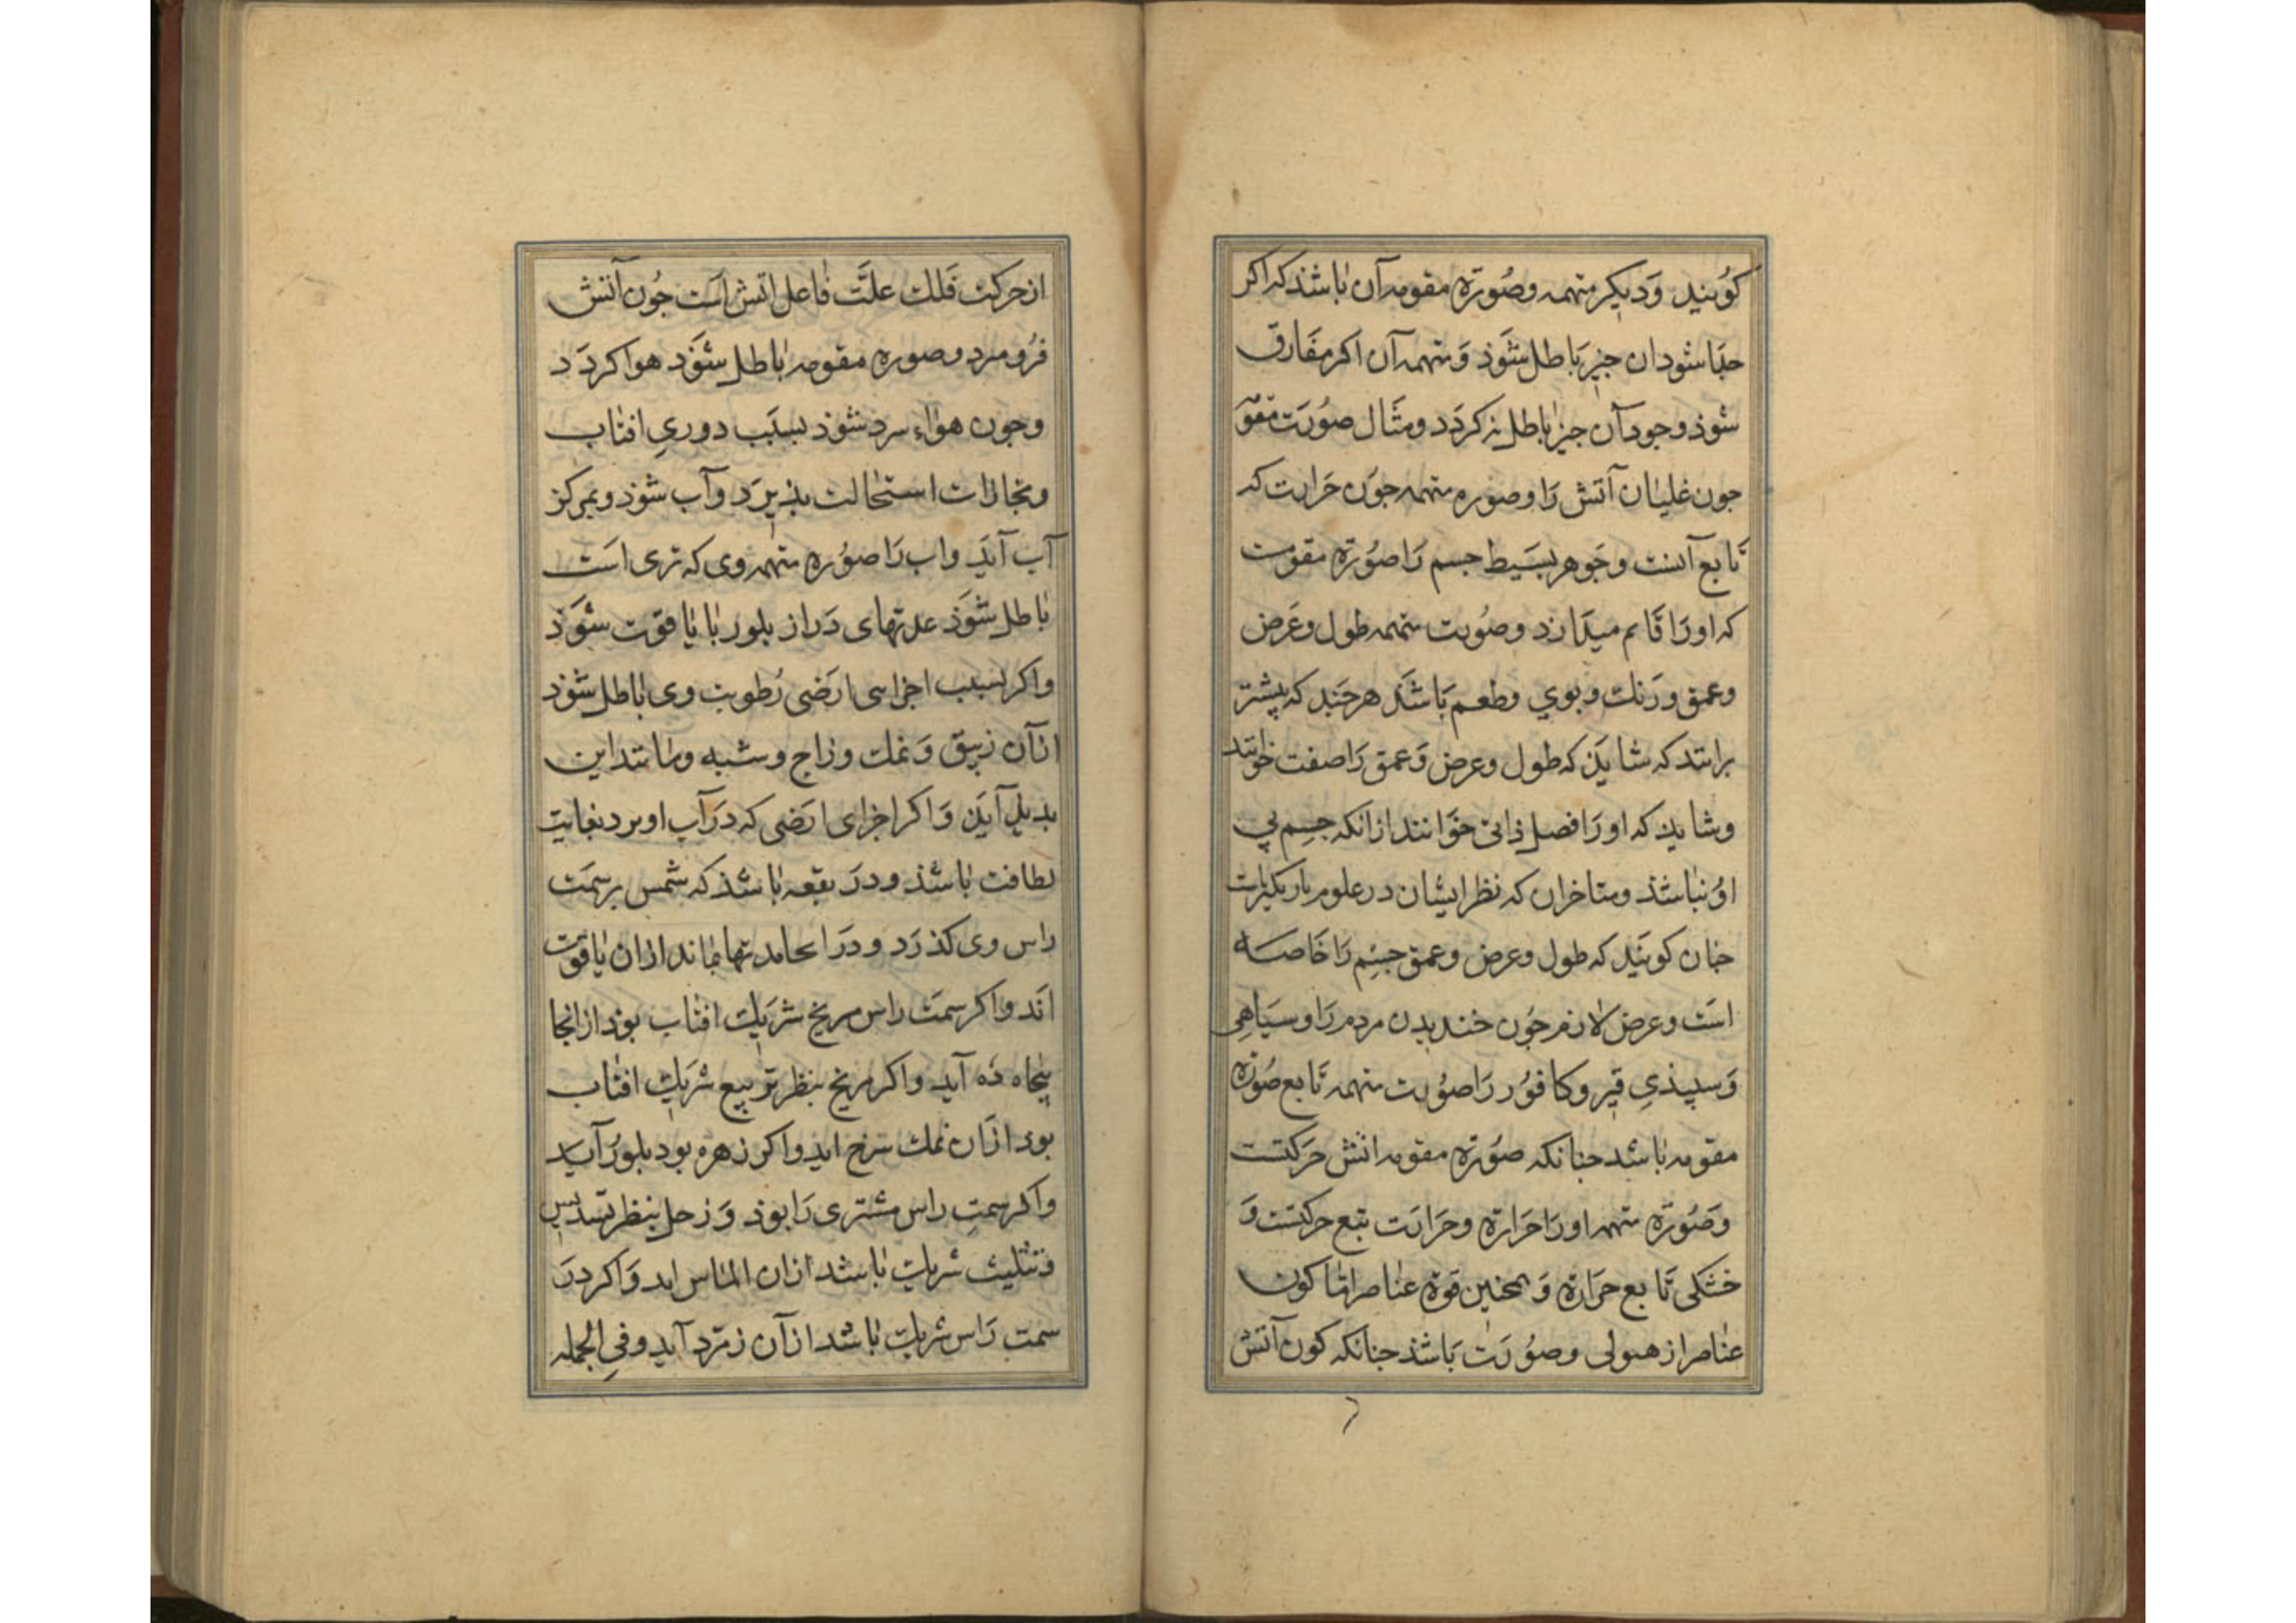 کویند و دیکر متممه وصورة مقومه آن باشد که اکر
جدا شود ان جیز باطل شوذ و متممه آن اکر مفارق
شوذ وجود آن جیز باطل نه کردد ومثال صورت مقومه
جون غلیان آتش را وصوره متممه جون حرارت که
تابع آنست وجوهر بسیط جسم را صورة مقومت
که اورا قایم میدارد وصورت متممه طول وعرض
وعمق ورنك وبوی وطعم باشد هرجند که پیشتر
برانند که شاید که طول وعرض وعمق را صفت خوانند
وشاید که اورا فصل ذاتی خوانند ازانکه جسم بی
او نباشد ومتاخران که نظر ایشان در علوم باریکترست
جنان کویند که طول وعرض وعمق جسم را خاصه
است وعرض لازم جون خندیدن مردم را وسیاهی
وسپیذی قیر وکافور را صورت متممه تابع صورة
مقومه باشد جنانکه صورة مقومه اتش حرکتست
وصورة متممه اورا حرارة وحرارت تبع حرکتست و
خشکی تابع حرارة وهمجنین قوة عناصر اما کون
عناصر از هیولی وصورت باشذ جنانکه کون آتش
از حرکت فلك علت فاعل اتش است جون آتش
فرو میرد وصوره مقومه باطل شوذ هوا کردد
وجون هواء سرد شوذ بسبب دوری افتاب
وبخارات استحالت بذیرد وآب شوذ وبمرکز
آب آید واب را صوره متممه وی که تری است
باطل شوذ بمدتهای دراز بلور یا یاقوت شوذ
واکر بسبب اجزای ارضی رطوبت وی باطل شوذ
ازآن زیبق ونمك وزاج وشبه ومانند این
بدید آید واکر اجزای ارضی که در آب او بود بغایت
لطافت باشذ ودر بقعه باشذ که شمس بر سمت
راس وی کذرد ودر انجا مدتها بماند ازان یاقوت
آید واکر سمت راس مریخ شریك افتاب بود از انجا
بیجاده آید واکر مریخ بنظر تربیع شریك افتاب
بود ازان نمك سرخ اید واکر زهره بود بلور آید
واکر سمت راس مشتری را بوذ وزحل بنظر تسدیس
وتثلیث شریك باشد ازان الماس اید واکر در
سمت راس شریك باشد ازآن زمرد آید وفی الجمله